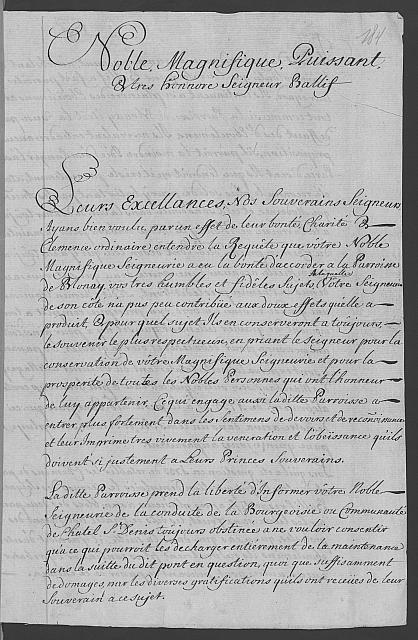 184
Noble, Magnifique, Puissant,
& tres honnore Seigneur Ballif
Leurs Excellances, Nos Souverains Seigneurs
Ayans bien voulu, par un effet de leur bonté Charité &
Clemence ordinaire entendre la Requéte que vôtre Noble
Magnifique Seigneurie a eu la bonté d'accorder a la Parroisse
de Blonay, vos tres humbles et fidéles Sujets Vôtre Seigneurie
de son côte n'a pas peu contribüé aux doux effets quelle a
produit, & pour quel sujet Ils en conserveront a toujours
le souvenir le plus respectueux, en priant le Seigneur pour la
conservation de vôtre Magnifique Seigneurie et pour la
prosperité de toutes les Nobles Personnes qui ont l'honneur
de luy appartenir. Ce qui engage aussi laditte Parroisse a
entrer plus fortement dans les Sentimens de devoirs et de reconnoissance
et leur Imprime tres vivement la veneration et l'obeissance qu'ils
doivent si justement a Leurs Princes Souverains.
Laditte Parroisse prend la liberté d'Informer vôtre Noble
Seigneurie de la conduite de la Bourgeoisie ou Communauté
de Chatel St Denis toujours obstinée a ne vouloir consentir
qu'a ce que pourroit les decharger entiérement de la maintenance
dans la suitte du dit pont en question, quoi que suffisamment
dedomagés, par les diverses gratifications qu'ils ont receües de leur
Souverain a ce sujet.